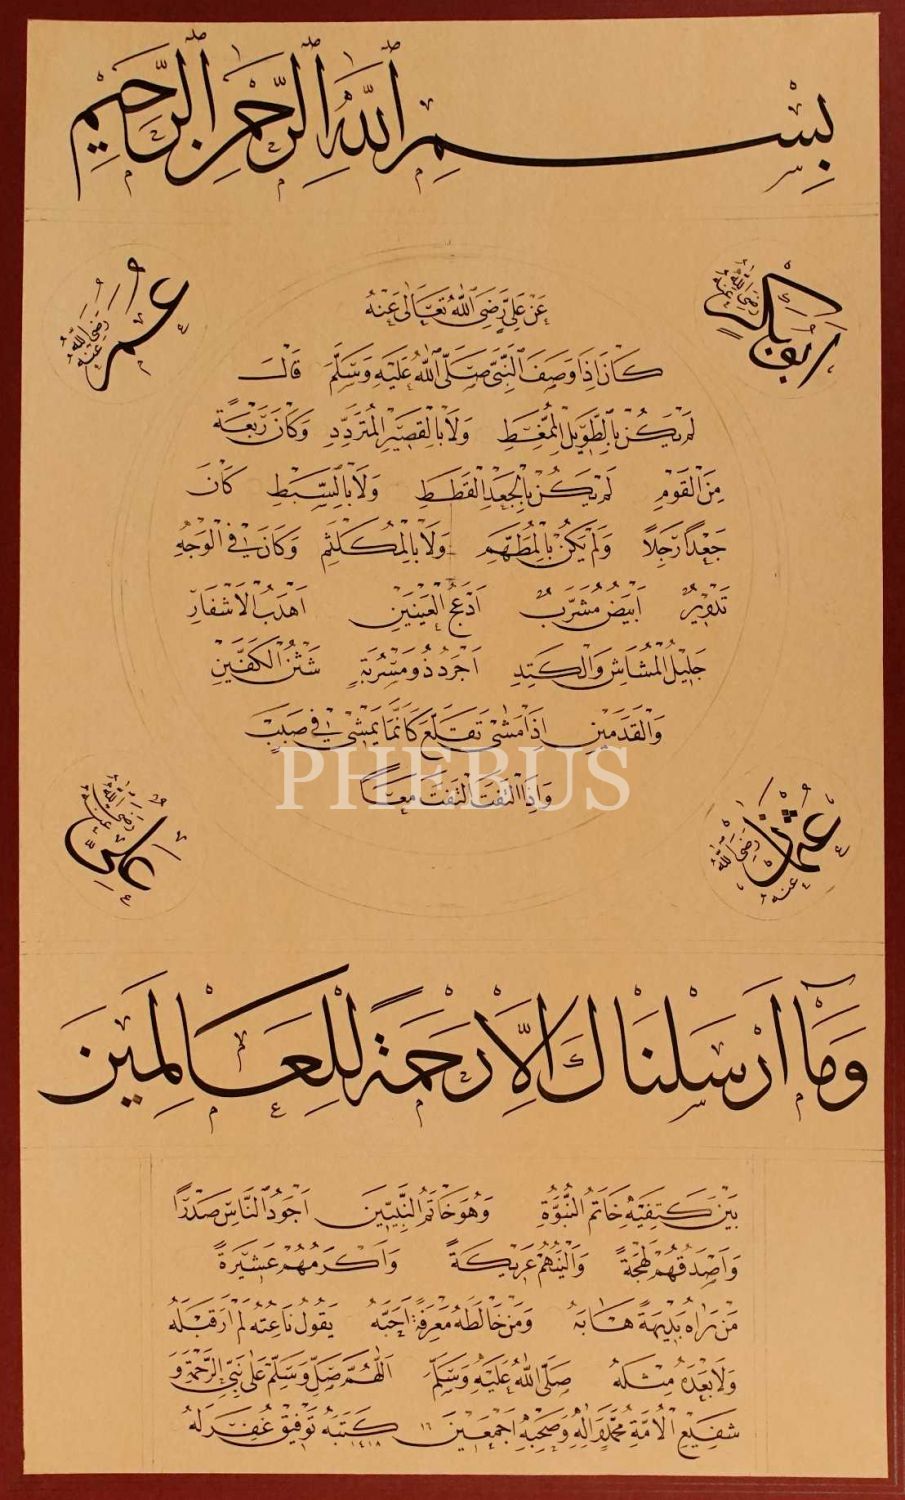 بِسْمِ ٱللَّهِ ٱلرَّحْمَٰنِ ٱلرَّحِيمِ
أبو بكر رضي الله عنه
عمر رضي الله عنه
عَنْ عَلِيٍّ رَضِيَ ٱللَّهُ تَعَالَى عَنْهُ
كَانَ إِذَا وَصَفَ ٱلنَّبِيَّ صَلَّى ٱللَّهُ عَلَيْهِ وَسَلَّمَ قَالَ
لَمْ يَكُنْ بِالطَّوِيلِ الْمُمَّغِطِ وَلَا بِالْقَصِيرِ الْمُتَرَدِّدِ وَكَانَ رَبْعَةً
مِنَ الْقَوْمِ لَمْ يَكُنْ بِالْجَعْدِ الْقَطَطِ وَلَا بِالسَّبِطِ كَانَ
جَعْدًا رَجِلًا وَلَمْ يَكُنْ بِالْمُطَهَّمِ وَلَا بِالْمُكَلْثَمِ وَكَانَ فِي الْوَجْهِ
تَدْوِيرٌ أَبْيَضُ مُشْرَبٌ أَدْعَجُ الْعَيْنَيْنِ أَهْدَبُ الْأَشْفَارِ
جَلِيلُ الْمُشَاشِ وَالْكَتَدِ أَجْرَدُ ذُو مَسْرُبَةٍ شَثْنُ الْكَفَّيْنِ
وَالْقَدَمَيْنِ إِذَا مَشَى تَقَلَّعَ كَأَنَّمَا يَمْشِي فِي صَبَبٍ
وَإِذَا الْتَفَتَ الْتَفَتَ مَعًا
PHEBUS
عثمان رضي الله عنه
علي رضي الله عنه
وَمَا أَرْسَلْنَاكَ إِلَّا رَحْمَةً لِلْعَالَمِينَ
بَيْنَ كَتِفَيْهِ خَاتَمُ النُّبُوَّةِ وَهُوَ خَاتَمُ النَّبِيِّينَ أَجْوَدُ النَّاسِ صَدْرًا
وَأَصْدَقُهُمْ لَهْجَةً وَأَلْيَنُهُمْ عَرِيكَةً وَأَكْرَمُهُمْ عَشِيرَةً
مَنْ رَآهُ بَدِيهَةً هَابَهُ وَمَنْ خَالَطَهُ مَعْرِفَةً أَحَبَّهُ يَقُولُ نَاعِتُهُ لَمْ أَرَ قَبْلَهُ
وَلَا بَعْدَهُ مِثْلَهُ صَلَّى اللَّهُ عَلَيْهِ وَسَلَّمَ اللَّهُمَّ صَلِّ وَسَلِّمْ عَلَى نَبِيِّ الرَّحْمَةِ وَ
شَفِيعِ الْأُمَّةِ مُحَمَّدٍ وَآلِهِ وَصَحْبِهِ أَجْمَعِينَ كَتَبَهُ تَوْفِيقْ غُفِرَ لَهُ ١٤١٨